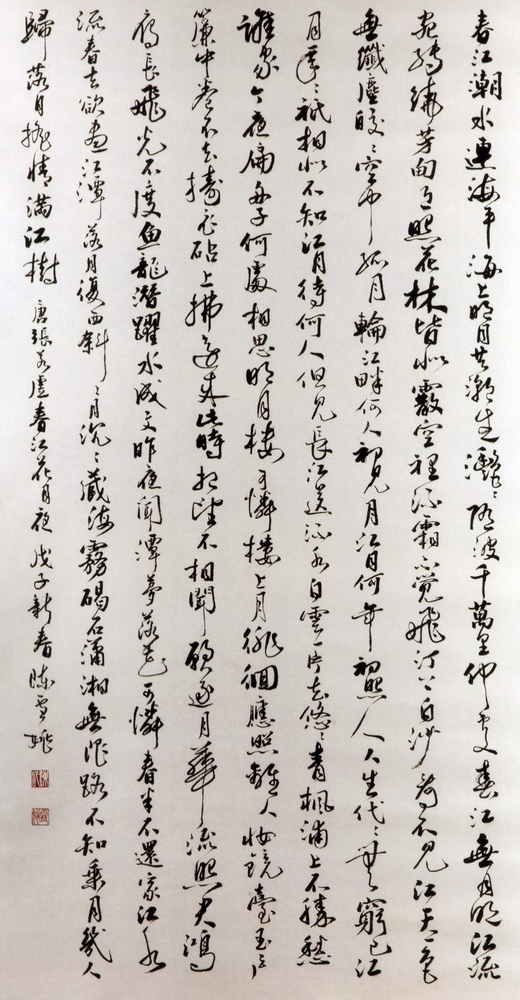 春江潮水連海平海上明月共潮生灩〻隨波千萬里何處春江無月明江流
宛轉繞芳甸月照花林皆似霰空裡流霜不覺飛汀上白沙看不見江天一色
無纖塵皎〻空中孤月輪江畔何人初見月江月何年初照人人生代〻無窮已江
月年〻祇相似不知江月待何人但見長江送流水白雲一片去悠〻青楓浦上不勝愁
誰家今夜扁舟子何處相思明月樓可憐樓上月徘徊應照離人妝鏡臺玉戶
簾中卷不去擣衣砧上拂還來此時相望不相聞願逐月華流照君鴻
雁長飛光不度魚龍潛躍水成文昨夜閒潭夢落花可憐春半不還家江水
流春去欲盡江潭落月復西斜〻月沉〻藏海霧碣石瀟湘無限路不知乘月幾人
歸落月搖情滿江樹 唐張若虛春江花月夜 戊子新春